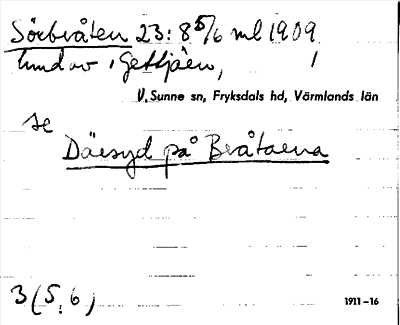 Sörbråten 23: 8 5/6 ml 1909
lund av i Gettjärn,
V. Sunne sn, Fryksdals hd, Värmlands län
se
Däresyd på Bråtarna
3 (5, 6)
1911-16